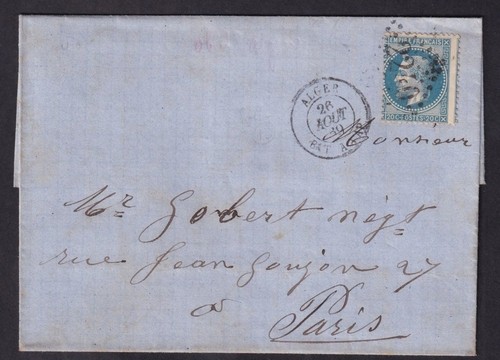 EMPIRE FRANÇAIS
20 C POSTES 20 C
ALGER
26
AOUT
69
BAT A
Monsieur
Mr Gobert négt
rue Jean Goujon 27
à
Paris